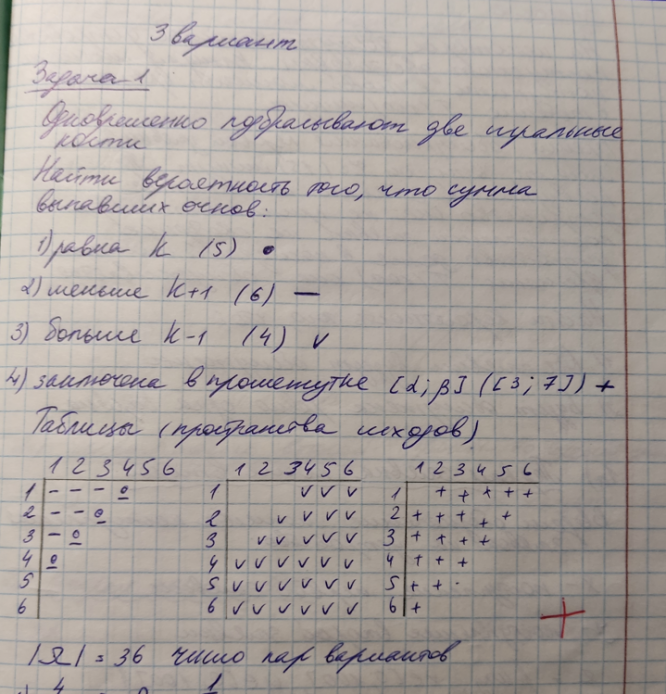 3 вариант
Задача 1
Одновременно подбрасывают две игральные
кости
Найти вероятность того, что сумма
выпавших очков:
1) равна k (5) •
2) меньше k+1 (6) —
3) больше k-1 (4) v
4) заключена в промежутке [α; β] ([3; 7]) +
Таблицы (пространства исходов)
1 2 3 4 5 6 1 2 3 4 5 6 1 2 3 4 5 6
1 - - - o 1 v v v 1 + + + + +
2 - - o 2 v v v v 2 + + + + +
3 - o 3 v v v v v 3 + + + +
4 o 4 v v v v v v 4 + + +
5 5 v v v v v v 5 + + ·
6 6 v v v v v v 6 +
+
|Ω| = 36 число пар вариантов